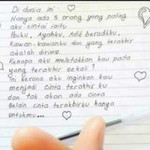 Di dunia ini
Hanya ada 5 orang yang paling
aku cintai iaitu
Ibuku, Ayahku, Adik beradikku,
Kawan-kawanku dan yang terakhir
adalah dirimu.
Kenapa aku meletakkan kau pada
yang terakhir sekali?
Ini kerana aku inginkan kau
menjadi cinta terakhir ku
dan tak akan ada cara
lain cinta terakhirku hanya
untukmu...